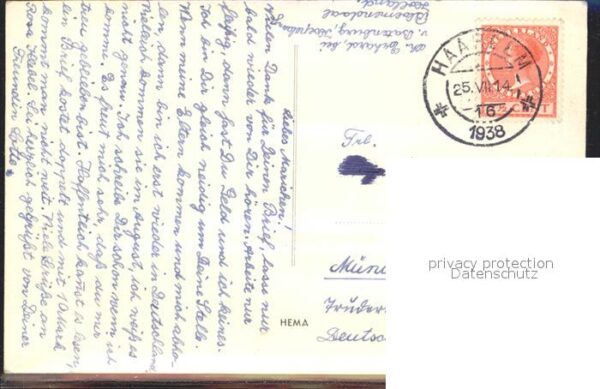 Abs. Erhard, bei
v. Batenburg, Koepellaan
Bloemendaal
Holland
Liebes Mariechen!
Vielen Dank für Deinen Brief, lasse nur
bald wieder von Dir hören. Arbeite nur
fleißig, dann hast Du Geld und ich keines.
Ich bin Dir gleich neidig um Deine Stelle.
Wenn meine Eltern kommen und mich abho-
len, dann bin ich erst wieder in Deutschland
Vielleich kommen sie im August, ich weiß es
nicht genau. Ich schreibe Dir schon wenn ich
komme. Es freut mich sehr, daß du mir
treu geblieben bist. Hoffentlich kannst es lesen,
ein Brief kostet doppelt und mit 10 Mark
kommt man nicht weit. Viele Grüße an
Sei herzlich gegrüßt von Deiner
Freundin Lotte.
HAARLEM
25.VII.14
16
1938
CENT
Frl.
Mün
Truder
Deutsc
HEMA
privacy protection
Datenschutz